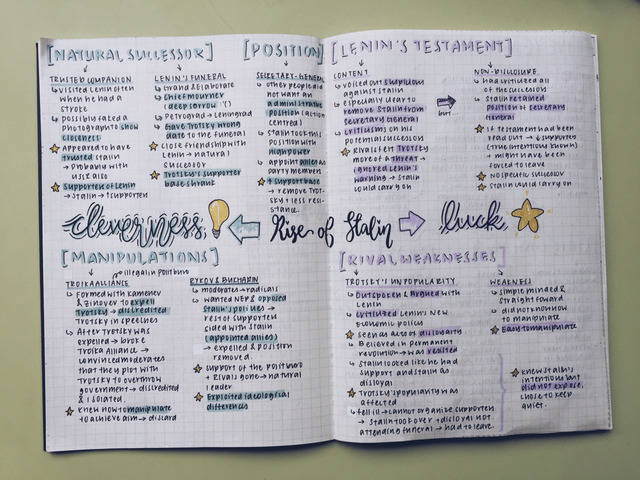 [NATURAL SUCCESSOR]
TRUSTED COMPANION
↳ visited Lenin often
when he had a
stroke
↳ possibly faked a
photograph to show
closeness
☆ Appeared to have
trusted Stalin
→ probably with
USSR also
☆ Supporter of Lenin
→ Stalin ↑ support
LENIN'S FUNERAL
↳ Grand & Elaborate
↳ Chief mourner
(deep sorrow :'()
↳ Petrograd → Leningrad
↳ Gave Trotsky wrong
date to the funeral
☆ close friendship with
Lenin → natural
successor
☆ Trotsky's supporter
base shrank
[POSITION]
SECRETARY-GENERAL
↳ other people did
not want an
administrative
position (action
centred)
↳ Stalin took this
position with
high power
↳ appoint allies as
party members
☆ ↑ support base
→ remove Trot-
sky + less resi-
stance.
[LENIN'S TESTAMENT]
CONTENT
↳ voiced out suspicions
against Stalin
↳ especially clear to
remove Stalin from
Secretary General
↳ criticisms on his
potential successor
☆ Rivals felt Trotsky
more of a threat →
ignored Lenin's
warning → Stalin
could carry on
but...
NON-DISCLOSURE
↳ had criticized all
of the succession
↳ Stalin retained
position of Secretary
General
☆ If Testament had been
read out → ↓ supporters
(true intentions known)
+ might have been
forced to leave
☆ No specific successor
☆ Stalin could carry on
cleverness
← Rise of Stalin →
luck
[MANIPULATIONS]
TROIKA ALLIANCE
→ illegal in Politburo
↳ Formed with Kamenev
& Zinover to expell
Trotsky → discredited
Trotsky in speeches
↳ After Trotsky was
expelled → broke
Troika Alliance →
convinced moderates
that they plot with
Trotsky to overthrow
government → discredited
& isolated.
☆ knew how to manipulate
to achieve aim → discard
RYKOV & BUCHARIN
↳ moderates → radicals
↳ wanted NEP & opposed
Stalin's policies →
rest of supporters
sided with Stalin
(appointed allies)
→ expelled & position
removed.
☆ support of the politburo
+ Rivals gone → natural
leader
☆ Exploited ideological
differences
[RIVAL WEAKNESSES]
TROTSKY'S UNPOPULARITY
↳ Outspoken & Argued with
Lenin
↳ criticized Lenin's New
Economic Policy
☆ seen as act of disloyalty
↳ Believed in permanent
revolution → was reviled
↳ Stalin looked like he had
support and Stalin as
disloyal
☆ Trotsky's popularity was
affected
↳ fell ill → cannot organize supporters
→ Stalin took over + disloyal not
attending funeral → had to leave.
WEAKNESS
↳ simple minded &
straight forward
↳ did not know how
to manipulate
☆ Easy to manipulate
☆ knew Stalin's
intentions but
did not expose,
chose to keep
quiet.